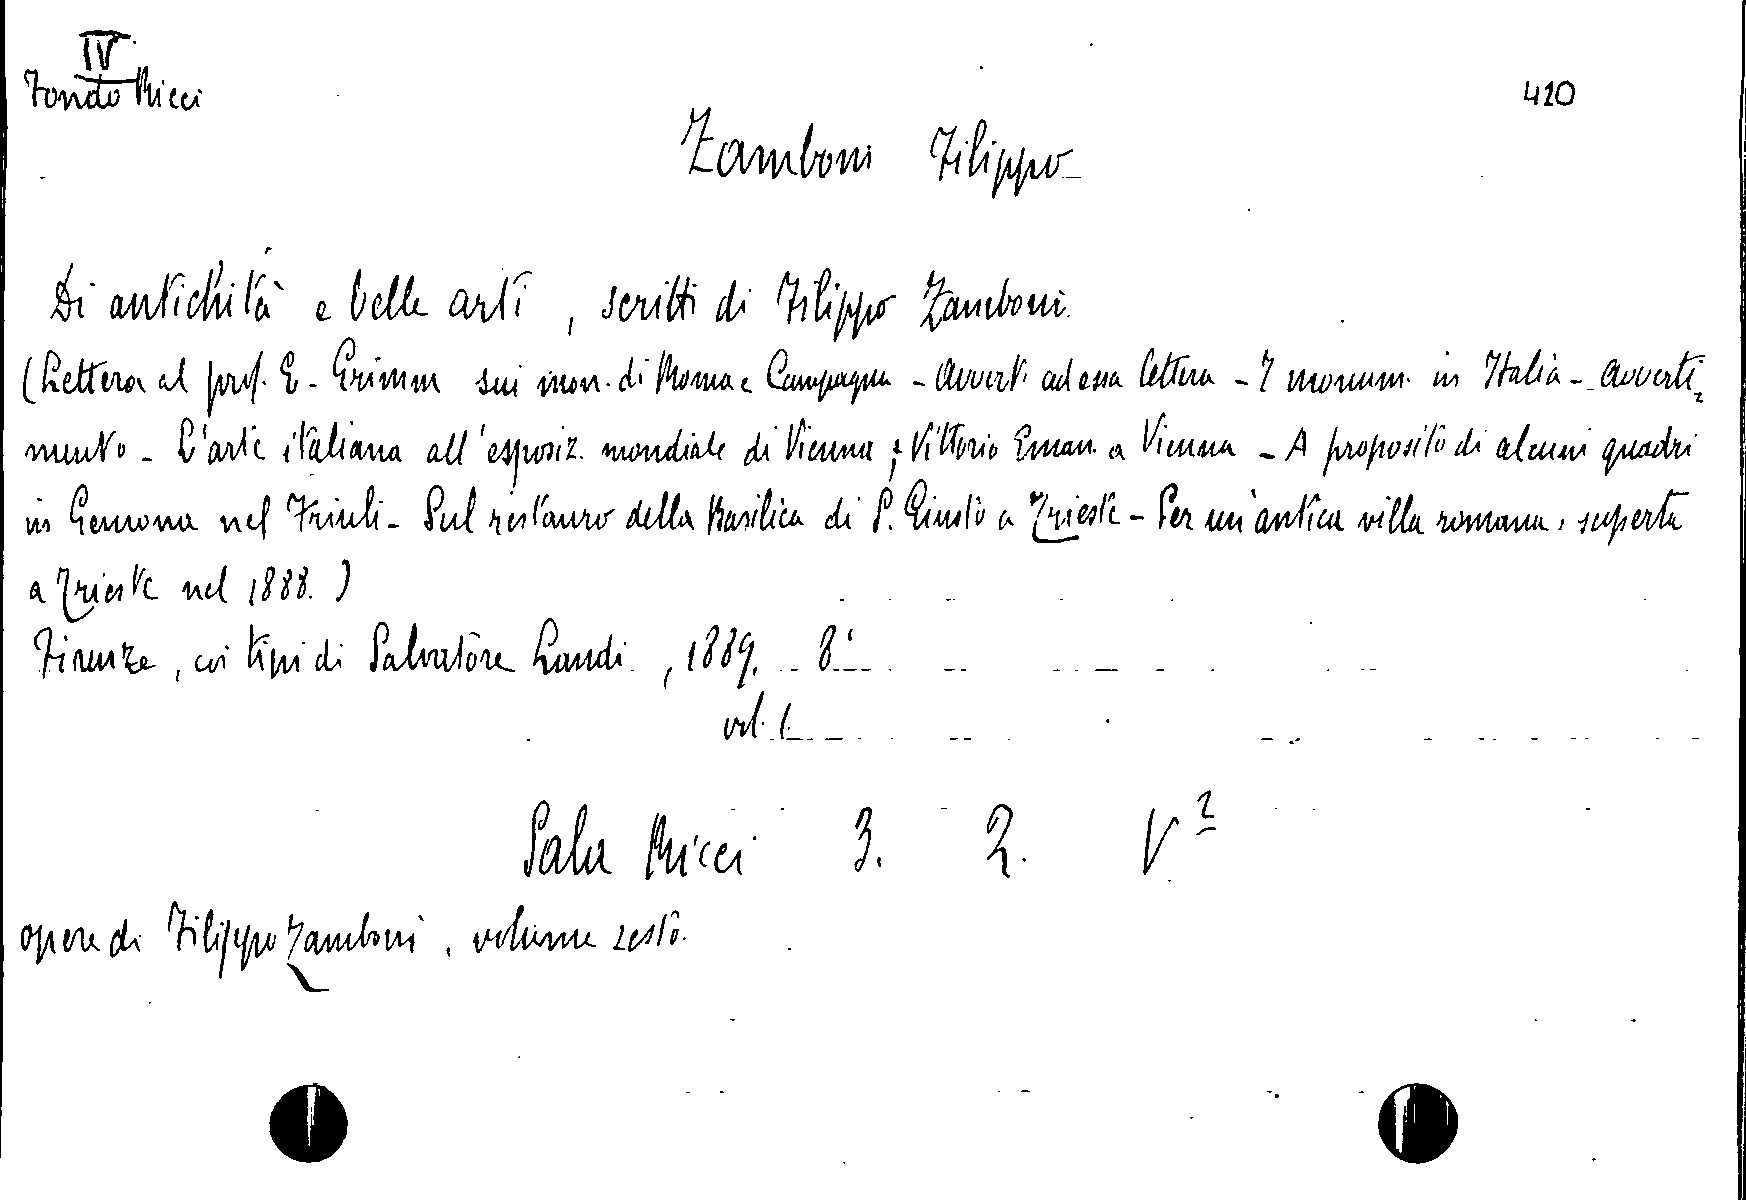 IV
Fondo Ricci
420
Zamboni Filippo
Di antichità e belle arti, scritti di Filippo Zamboni.
(Lettera al prof. E. Grimm sui mon. di Roma e Campagna - Avvert. ad essa lettera - I monum. in Italia - Avverti=
mento - L'arte italiana all'esposiz. mondiale di Vienna; Vittorio Eman. a Vienna - A proposito di alcuni quadri
in Gemona nel Friuli - Sul restauro della Basilica di S. Giusto a Trieste - Per un'antica villa romana, scoperta
a Trieste nel 1888.)
Firenze, coi tipi di Salvatore Landi, 1889. 8°
vol. 1.
Sala Ricci 3. 2. V²
opere di Filippo Zamboni, volume sesto.